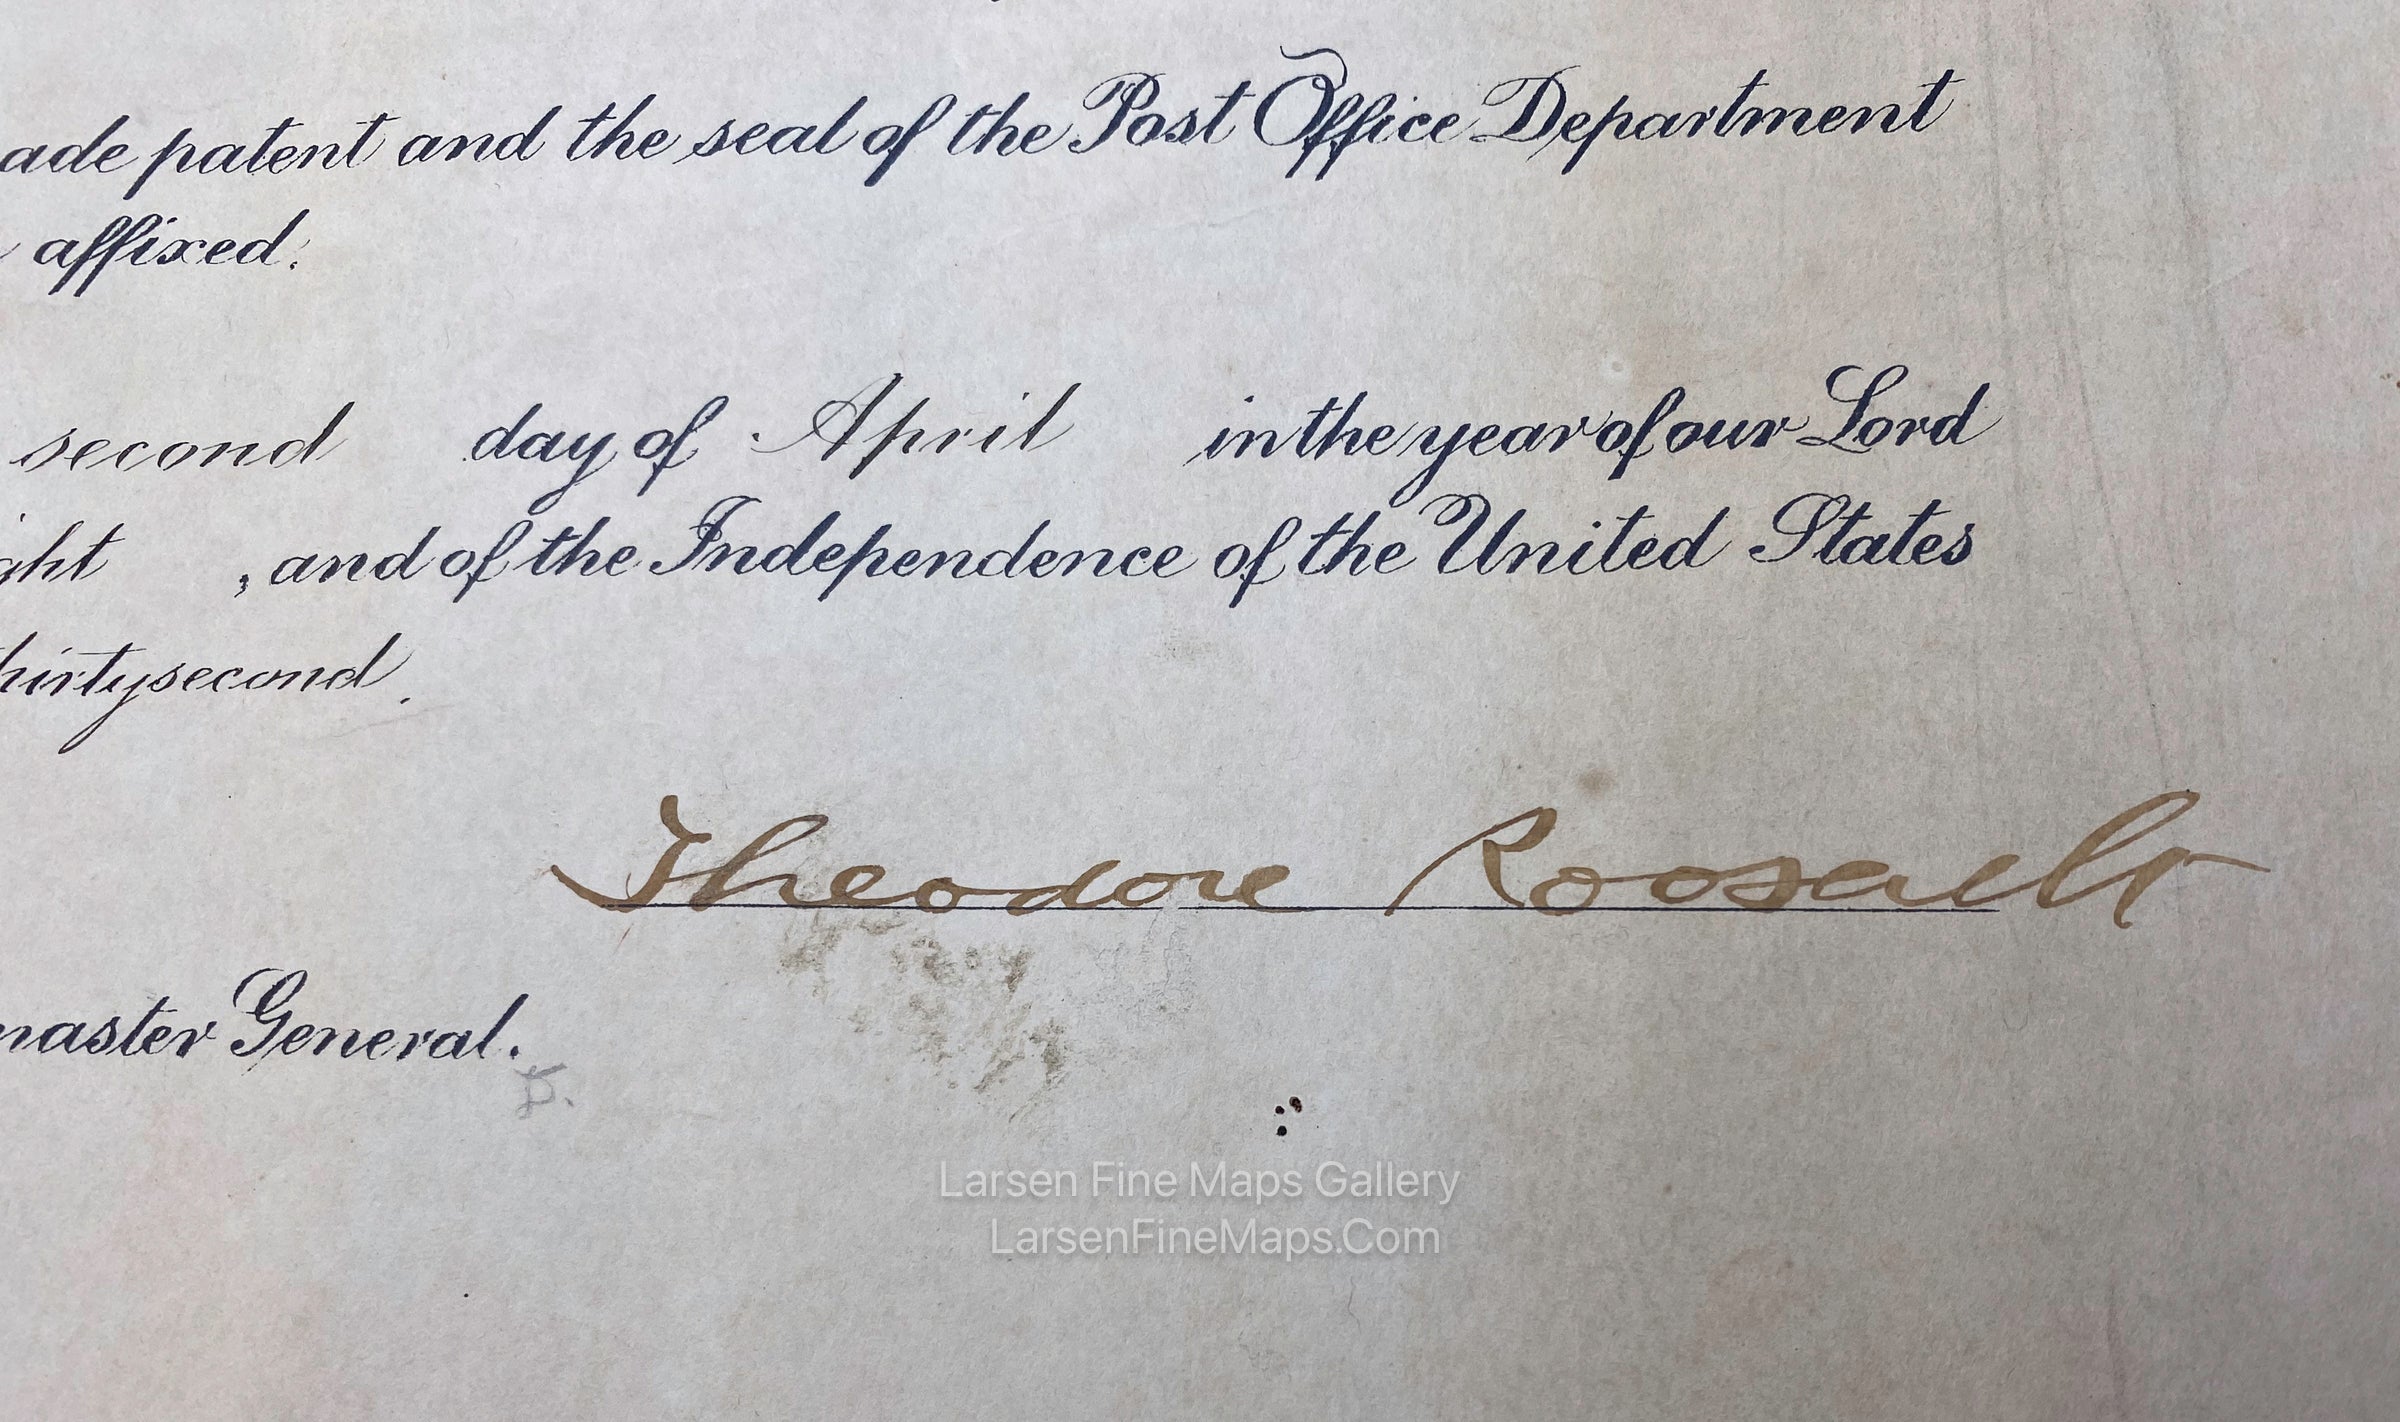 ade patent and the seal of the Post Office Department
affixed:
second day of April in the year of our Lord
ght , and of the Independence of the United States
hirtysecond.
Theodore Roosevelt
master General.
Larsen Fine Maps Gallery
LarsenFineMaps.Com